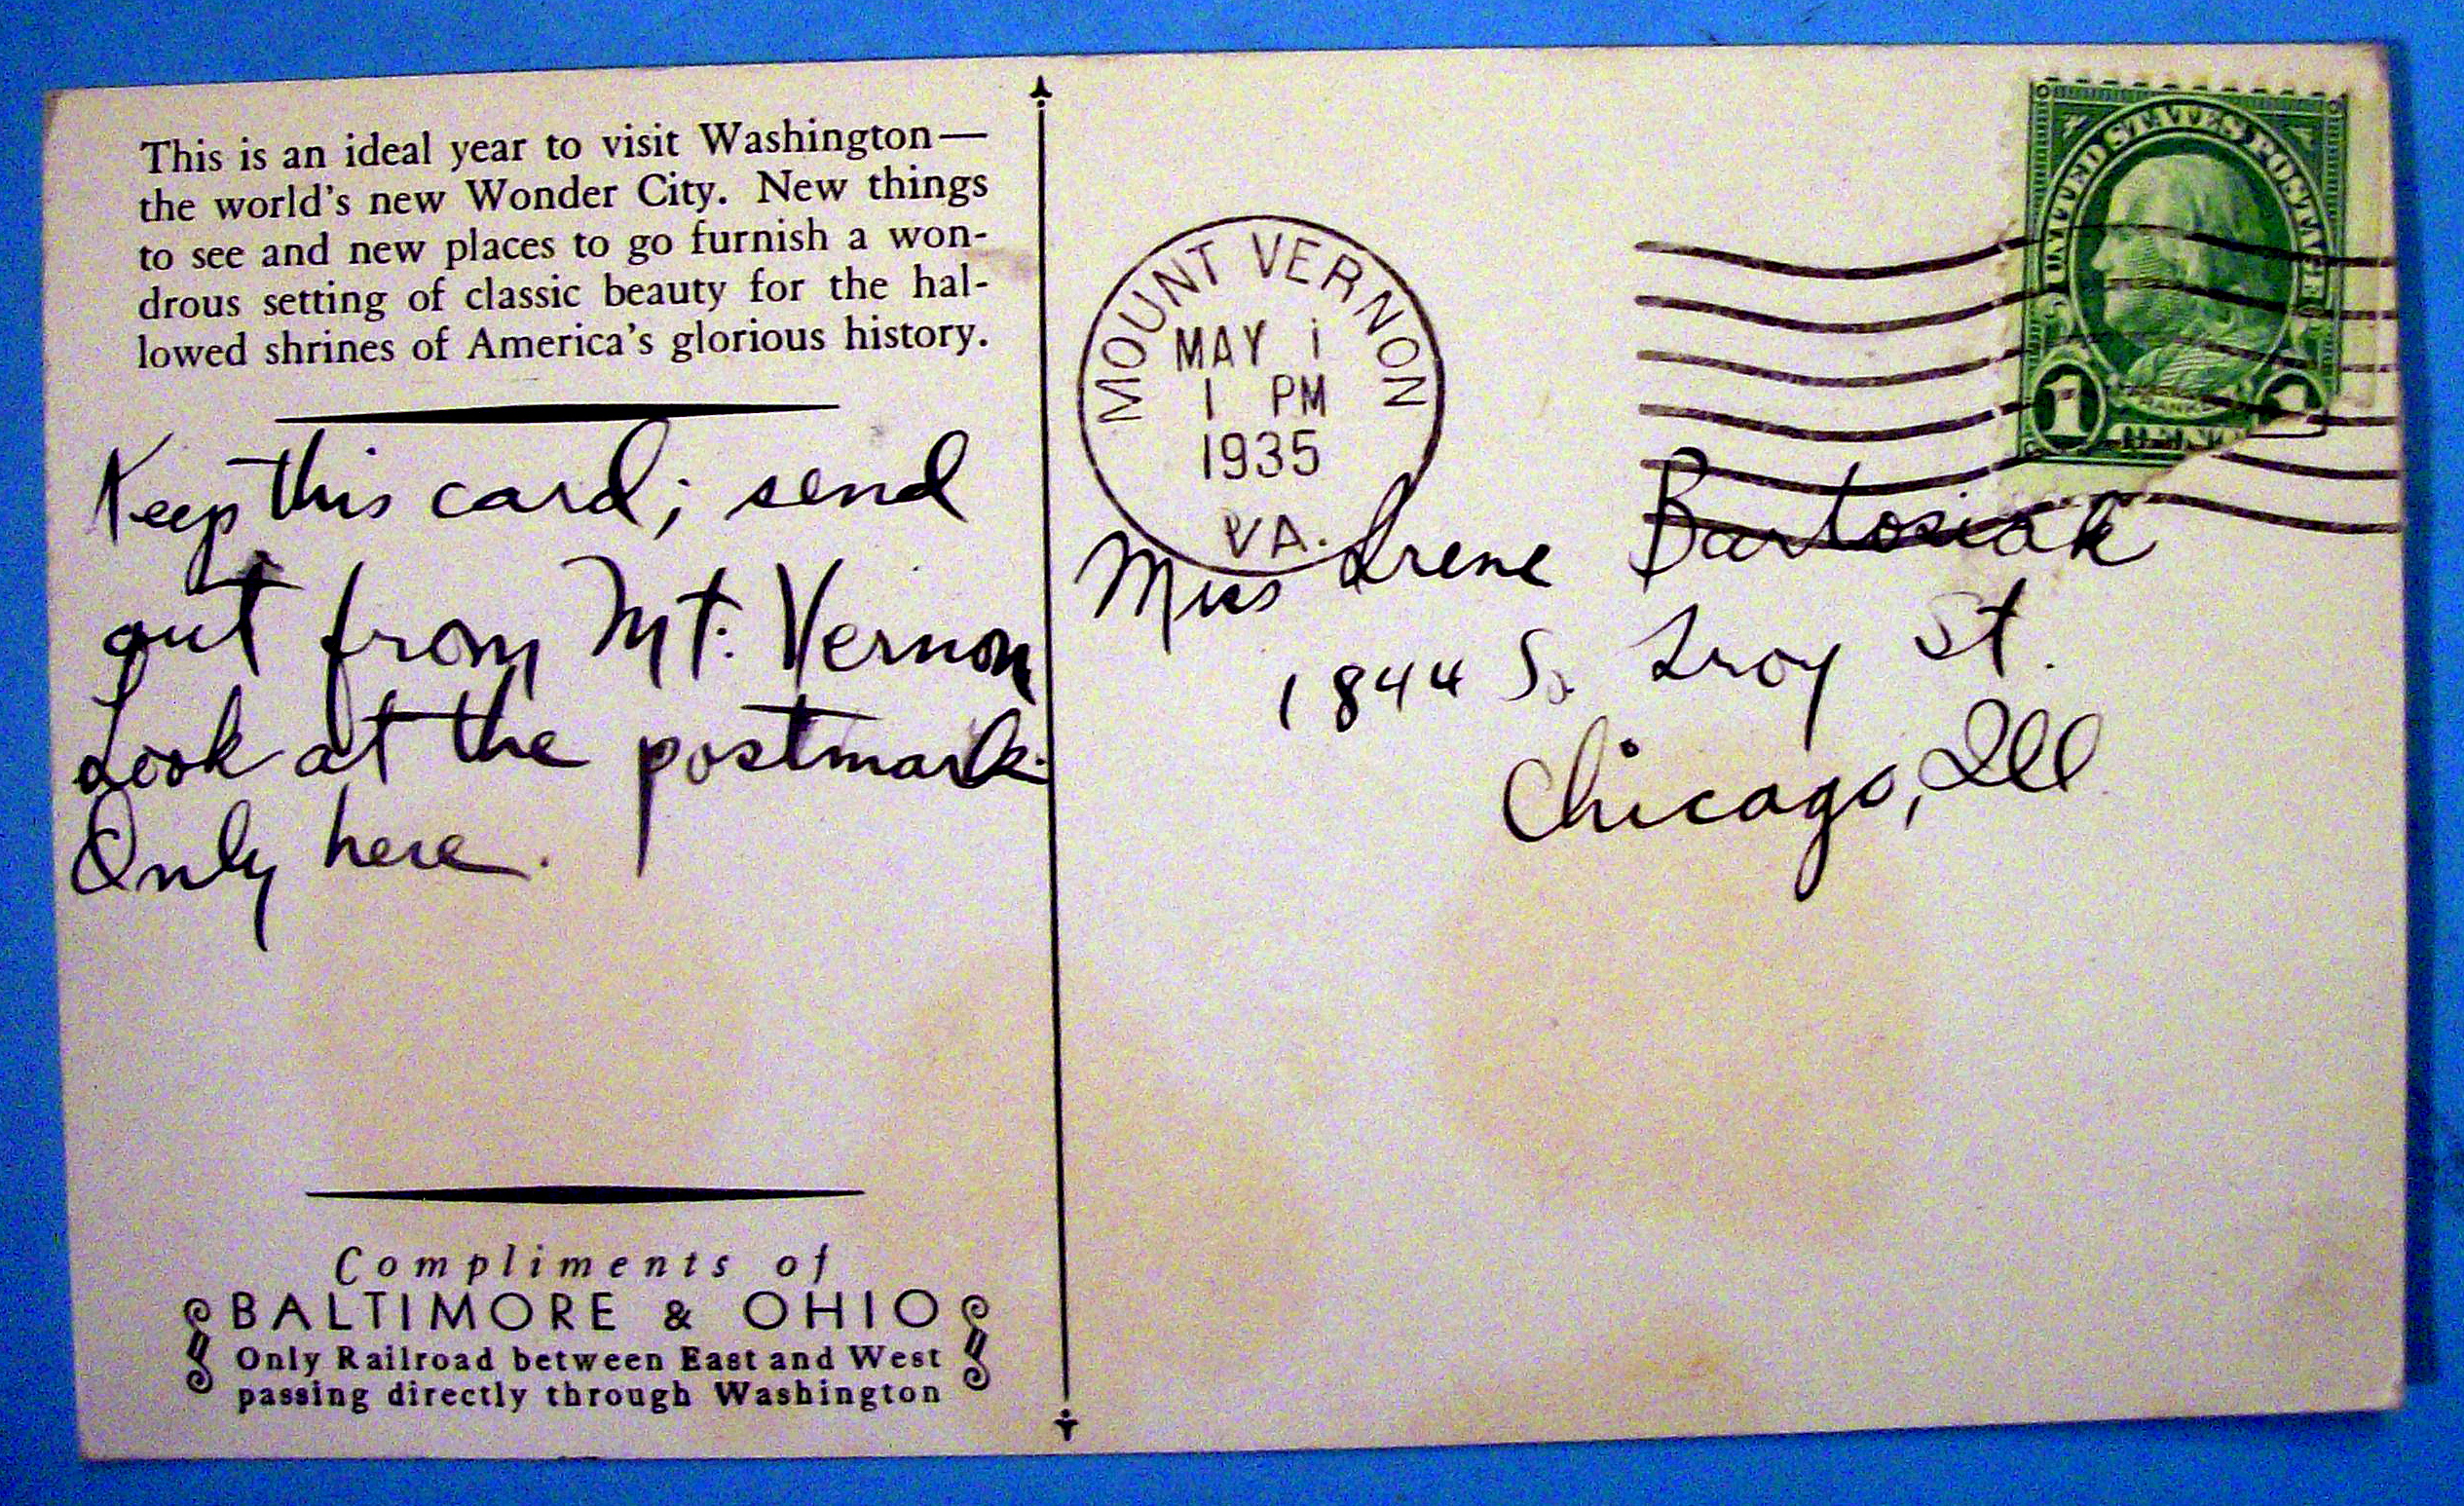 This is an ideal year to visit Washington—
the world's new Wonder City. New things
to see and new places to go furnish a won-
drous setting of classic beauty for the hal-
lowed shrines of America's glorious history.
Keep this card; send
out from Mt. Vernon
Look at the postmark.
Only here.
Compliments of
BALTIMORE & OHIO
Only Railroad between East and West
passing directly through Washington
MOUNT VERNON
MAY 1
1 PM
1935
VA.
UNITED STATES POSTAGE
1 1
Miss Irene Bartosiak
1844 So. Troy St.
Chicago, Ill